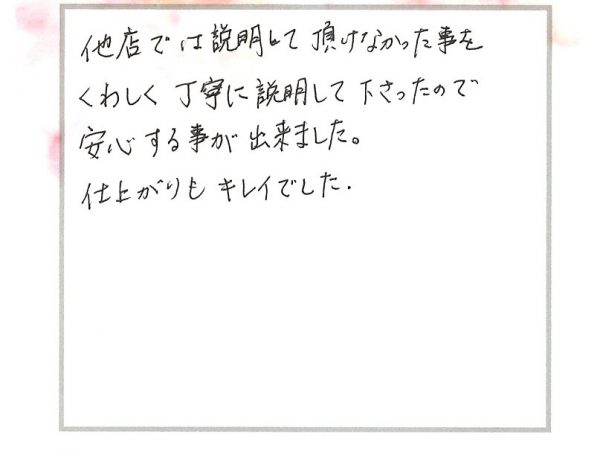 他店では説明して頂けなかった事を
くわしく丁寧に説明して下さったので
安心する事が出来ました。
仕上がりもキレイでした.